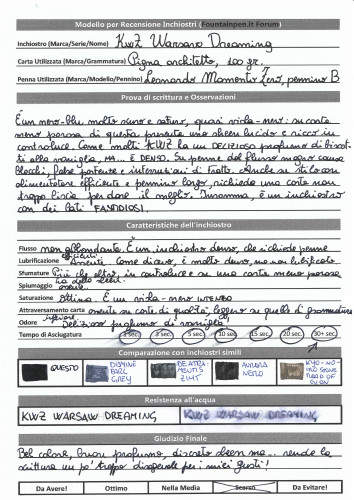 Modello per Recensione Inchiostri (Fountainpen.it Forum)
Inchiostro (Marca/Serie/Nome) KWZ Warsaw Dreaming
Carta Utilizzata (Marca/Grammatura) Pigna architetto, 100 gr.
Penna Utilizzata (Marca/Modello/Pennino) Leonardo Momento Zero, pennino B
Prova di scrittura e Osservazioni
È un nero-blu molto scuro e saturo, quasi viola-nero: su carta
meno porosa di questa presenta uno sheen lucido e ricco in
controluce. Come molti KWZ ha un DELIZIOSO profumo di biscot-
ti alla vaniglia, MA... È DENSO. Su penne dal flusso magro causa
blocchi, false partenze e interruzioni di tratto. Anche su stilo con
alimentatore efficiente e pennino largo, richiede una carta non
troppo liscia per dare il meglio. Insomma, è un inchiostro
con dei lati FASTIDIOSI.
Caratteristiche dell'inchiostro
Flusso non abbondante. È un inchiostro denso, che richiede penne
efficienti
Lubrificazione Assente. Come dicevo, è molto denso, ma non lubrificato
Sfumature Più che altro, in controluce e su una carta meno porosa
ha dello sheen.
Spiumaggio assente.
Saturazione Ottima. È un viola-nero INTENSO
Attraversamento carta assente su carte di qualità, leggero su quelle di grammatura
inferiore.
Odore Delizioso profumo di vaniglia
Tempo di Asciugatura 1 sec. 3 sec. 5 sec. 10 sec. 15 sec. 20 sec. 30+ sec.
Comparazione con Inchiostri simili
QUESTO
DIAMINE EARL GREY
DE ATRAMENTIS
AURORA NERO
KYO-NO-
Resistenza all'acqua
KWZ WARSAW DREAMING
KWZ WARSAW DREAMING
Giudizio Finale
Bel colore, buon profumo, discreto sheen ma... rende la
scrittura un po' troppo disagevole per i miei gusti!
Da Avere!
Ottimo
Nella Media
Scarso
Da Evitare!